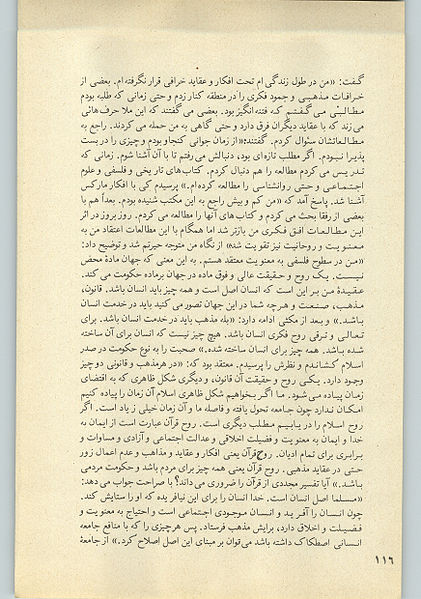 گفت: «من در طول زندگی ام تحت افکار و عقاید خرافی قرار نگرفته ام. بعضی از
خرافات مذهبی و جمود فکری را در منطقه کنار زدم و حتی زمانی که طلبه بودم
مطالبی می گفتم که فتنه انگیز بود. بعضی می گفتند که این ملا حرف هائی
می زند که با عقاید دیگران فرق دارد و حتی گاهی به من حمله می کردند. راجع به
مطالعاتشان سئوال کردم. گفتند: «از زمان جوانی کنجاو بودم و چیزی را در بست
پذیرا نبودم. اگر مطلب تازه ای بود، دنبالش می رفتم تا با آن آشنا شوم. زمانی که
تدریس می کردم مطالعه را هم دنبال کردم. کتاب های تاریخی و فلسفی و علوم
اجتماعی و حتی روانشناسی را مطالعه کرده ام.» پرسیدم کی با افکار مارکس
آشنا شد. پاسخ آمد که «من کم و بیش راجع به این مکتب شنیده بودم. بعداً هم با
بعضی از رفقا بحث می کردم و کتاب های آنها را مطالعه می کردم. روز بروز در اثر
این مطالعات افق فکری من بازتر شد اما همگام با این مطالعات اعتقاد من به
معنویت و روحانیت نیز تقویت شد» از نگاه من متوجه حیرتم شد و توضیح داد:
«من در سطوح فلسفی به معنویت معتقد هستم. به این معنی که جهان مادهٔ محض
نیست. یک روح و حقیقت عالی و فوق ماده در جهان بر ماده حکومت می کند.
عقیدهٔ من بر این است که انسان اصل است و همه چیز باید انسان باشد. قانون،
مذهب، صنعت و هر چه شما در این جهان تصور می کنید باید در خدمت انسان
باشد.» و بعد از مکثی ادامه داد: «بله مذهب باید در خدمت انسان باشد. برای
تعالی و ترقی روح فکری انسان باشد. هیچ چیز نیست که انسان برای آن ساخته
شده باشد. همه چیز برای انسان ساخته شده.» صحبت را به نوع حکومت در صدر
اسلام کشاندم و نظرش را پرسیدم. معتقد بود که: «در هر مذهب و قانونی دو چیز
وجود دارد. یکی روح و حقیقت آن قانون، و دیگری شکل ظاهری که به اقتضای
زمان پیاده می شود. ما اگر بخواهیم شکل ظاهری اسلام آن زمان را پیاده کنیم
امکان ندارد چون جامعه تحول یافته و فاصله ما و آن زمان خیلی زیاد است. اگر
روح اسلام را در یابیم مطلب دیگری است. روح قرآن عبارت است از ایمان به
خدا و ایمان به معنویت و فضیلت اخلاقی و عدالت اجتماعی و آزادی و مساوات و
برابری برای تمام ادیان. روح قرآن یعنی افکار و عقاید و مذاهب و عدم اعمال زور
حتی در عقاید مذهبی. روح قرآن یعنی همه چیز برای مردم باشد و حکومت مردمی
باشد.» آیا تفسیر مجددی از قرآن را ضروری می داند؟ با صراحت جواب می دهد:
«مسلما اصل انسان است. خدا انسان را برای این نیافریده که او را ستایش کند.
چون انسان را آفرید و انسان موجودی اجتماعی است و احتیاج به معنویت و
فضیلت و اخلاق دارد، برایش مذهب فرستاد. پس هر چیزی را که با منافع جامعه
انسانی اصطکاک داشته باشد می توان بر مبنای این اصل اصلاح کرد.» از جامعهٔ
۱۱۶